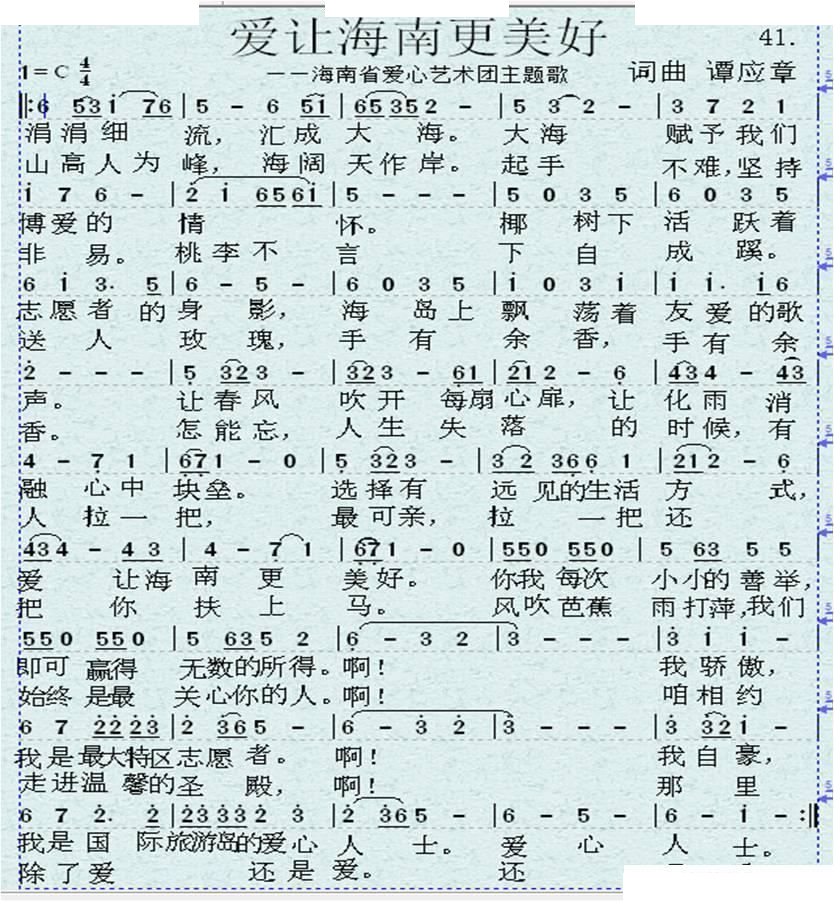 爱让海南更美好
41.
1=C 4/4
——海南省爱心艺术团主题歌
词曲 谭应章
‖:6 53 i 76 | 5 - 6 5i | 65 35 2 - | 5 3 2 - | 3 7 2 1
涓涓细 流，汇成 大 海。 大海 赋予我们
山高人为 峰， 海阔 天作岸。 起手 不难,坚持
i 7 6 - | 2 i 65 6i | 5 - - - | 5 0 3 5 | 6 0 3 5
博爱的 情 怀。 椰 树下 活 跃着
非 易。 桃李不 言 下 自 成 蹊。
6 i 3. 5 | 6 - 5 - | 6 0 3 5 | i 0 3 i | i i. i6
志愿者 的 身 影， 海 岛上 飘 荡着 友爱的歌
送 人 玫 瑰， 手 有 余 香， 手有 余
2 - - - | 5 323 - | 323 - 61 | 212 - 6 | 434 - 43
声。 让春风 吹开 每扇 心扉，让 化雨 消
香。 怎能忘， 人生 失 落 的 时候，有
4 - 7 1 | 671 - 0 | 5 323 - | 3 2 366 1 | 212 - 6
融 心中 块垒。 选择有 远 见的生活 方 式，
人 拉一 把， 最可亲， 拉 一把 还
434 - 43 | 4 - 7 1 | 671 - 0 | 550 550 | 5 63 5 5
爱 让海 南 更 美好。 你我 每次 小小的善举，
把 你 扶 上 马。 风吹 芭蕉 雨打萍,我们
550 550 | 5 635 2 | 6 - 3 2 | 3 - - - | 3 i i -
即可 赢得 无数的所得。啊！ 我骄傲，
始终 是最 关心你的人。啊！ 咱相约
6 7 22 23 | 2 365 - | 6 - 3 2 | 3 - - - | 3 32i -
我是最大特区志愿 者。 啊！ 我自豪，
走进温 馨的圣 殿， 啊！ 那 里
6 7 2. 2 | 23 33 2 3 | 2 365 - | 6 - 5 - | 6 - i - :‖
我是国 际旅游岛的爱心 人 士。 爱 心 人 士。
除了爱 还是 爱。 还